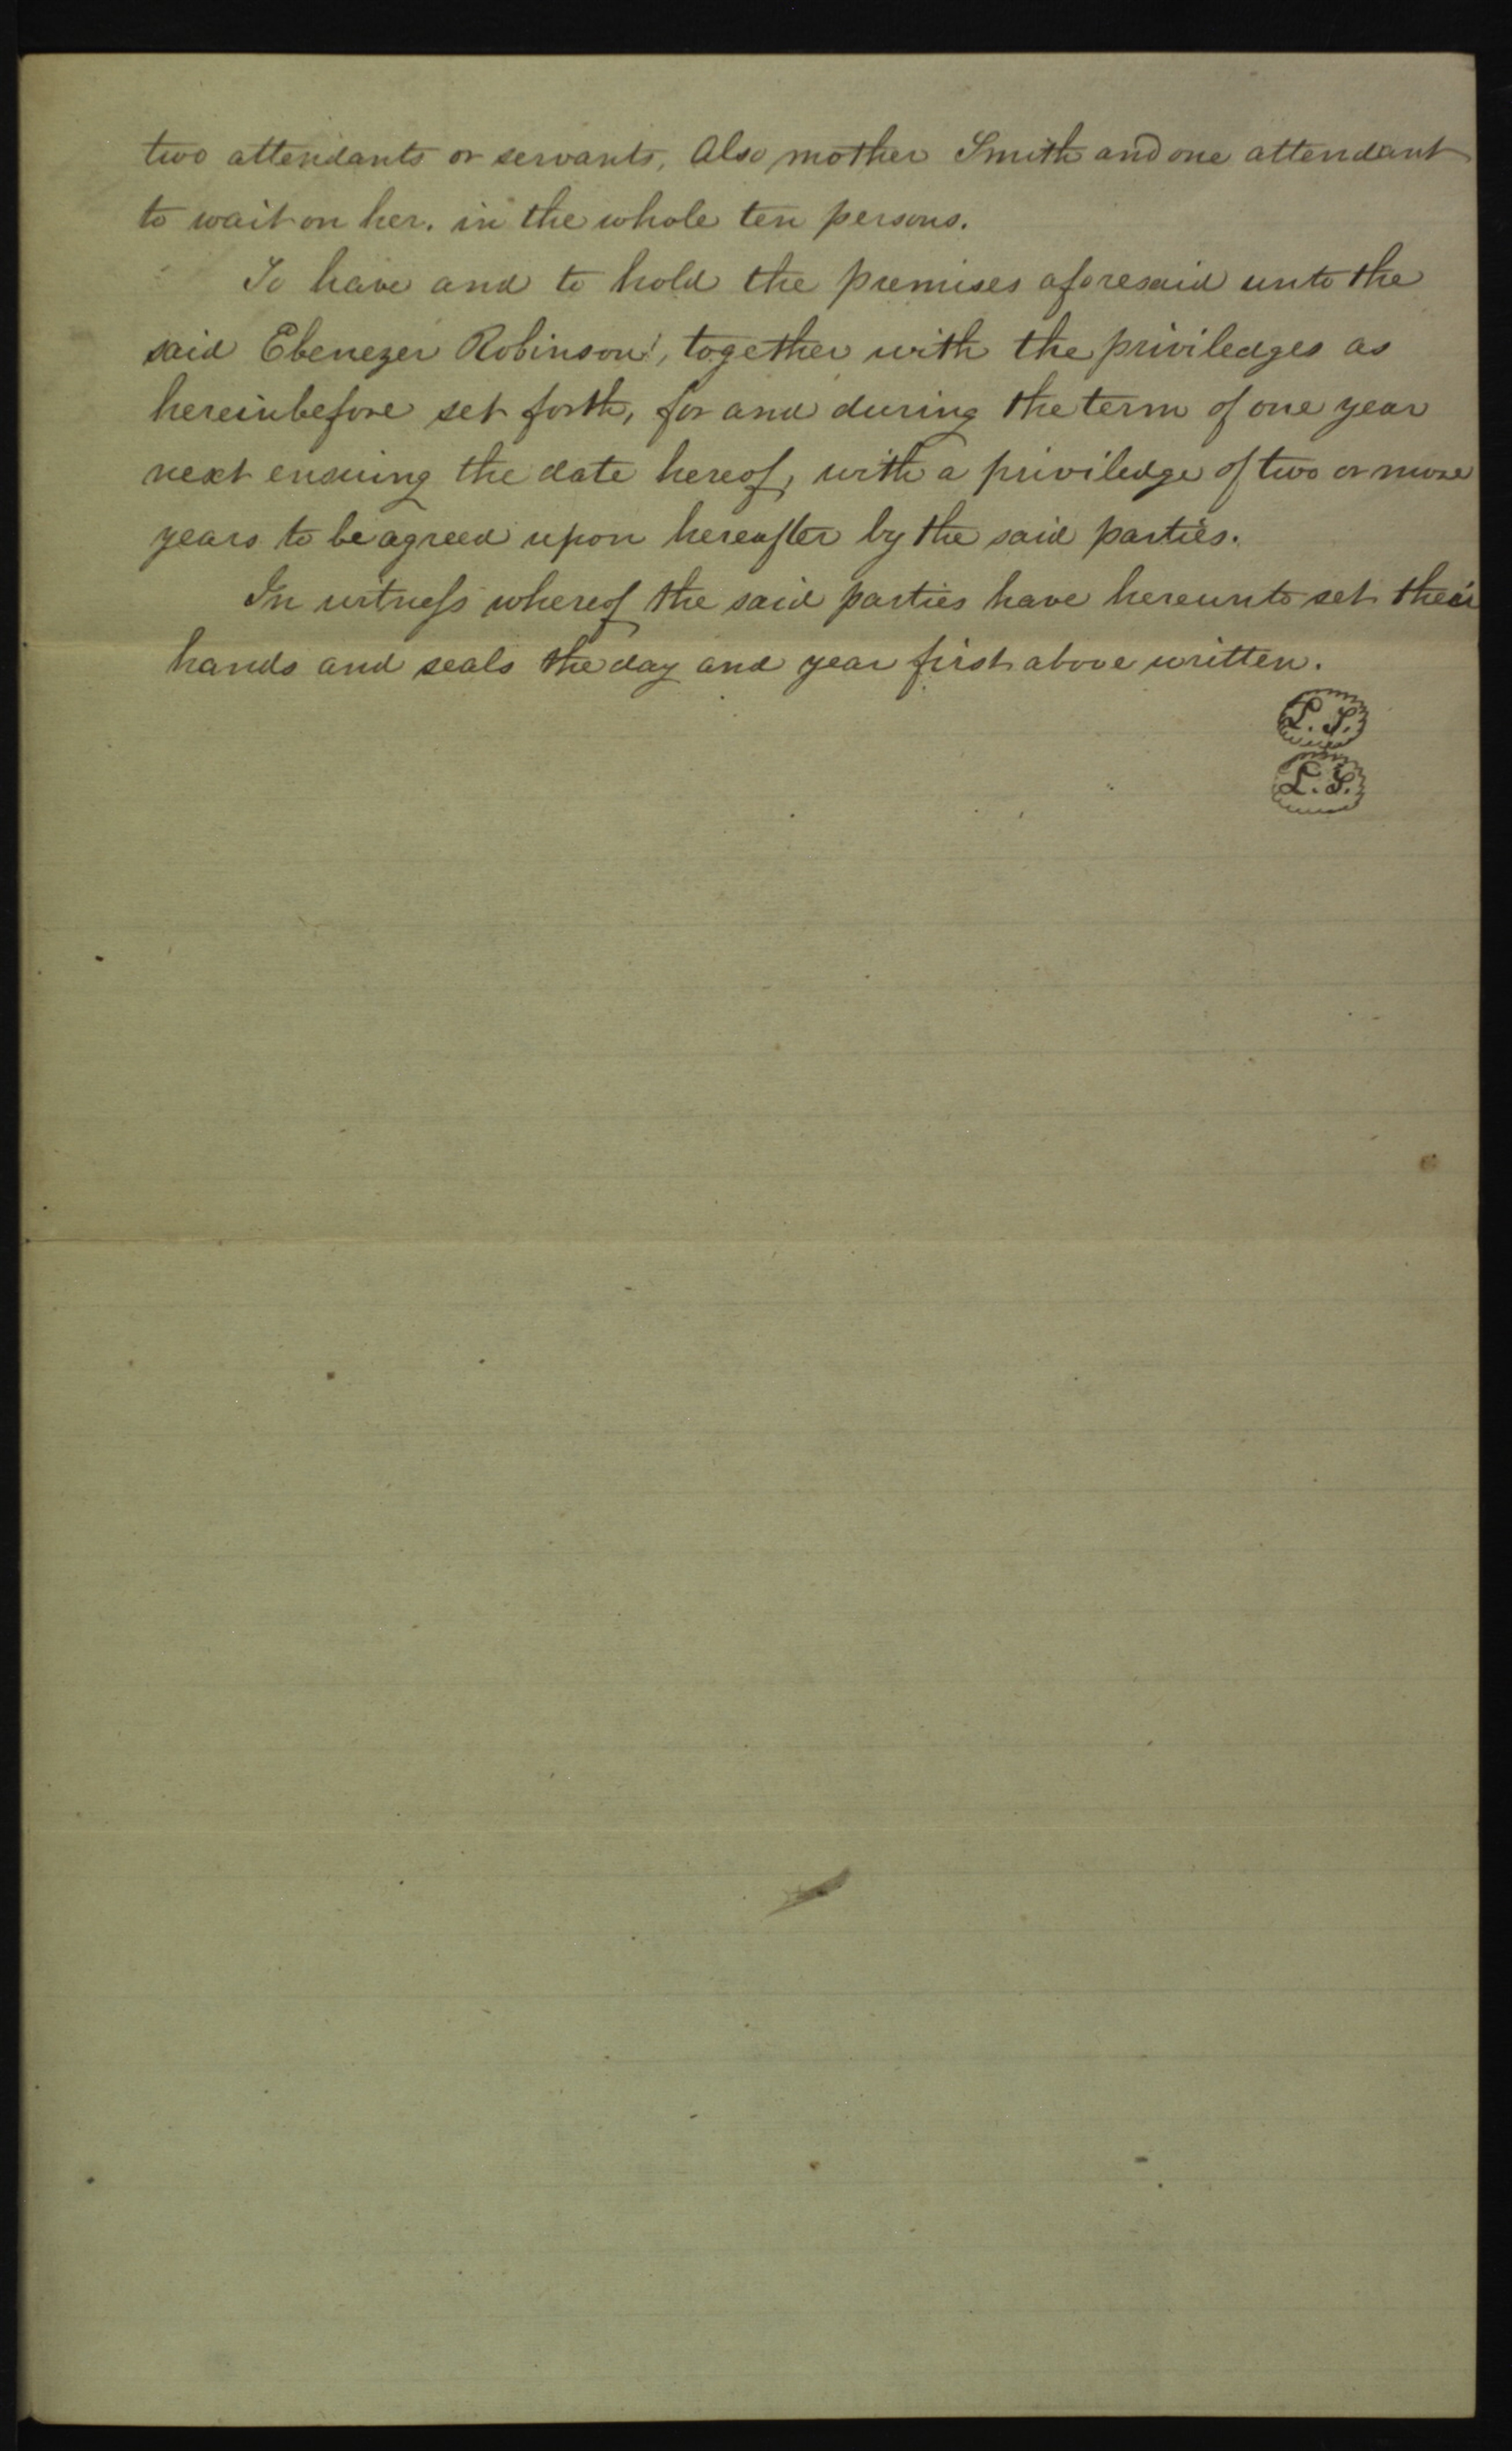 two attendants or servants, Also mother Smith and one attendant
to wait on her. in the whole ten persons.
To have and to hold the premises aforesaid unto the
said Ebenezer Robinson, together with the priviledges as
hereinbefore set forth, for and during the term of one year
next ensuing the date hereof, with a priviledge of two or more
years to be agreed upon hereafter by the said parties.
In witness whereof the said parties have hereunto set their
hands and seals the day and year first above written.
L.S.
L.S.